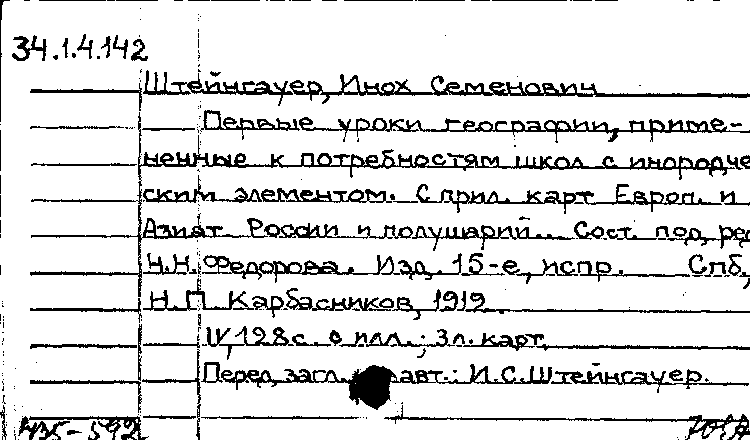 34.1.4.142
Штейнгауер, Инох Семенович
Первые уроки географии, приме-
ненные к потребностям школ с инородче
ским элементом. С прил. карт Европ. и
Азиат. России и полушарий... Сост. под ред
Н.Н. Федорова. Изд. 15-е, испр. Спб,
Н.П. Карбасников, 1912.
IV, 128 с. с илл.; 3 л. карт.
Перед загл. авт.: И.С. Штейнгауер.
435-592